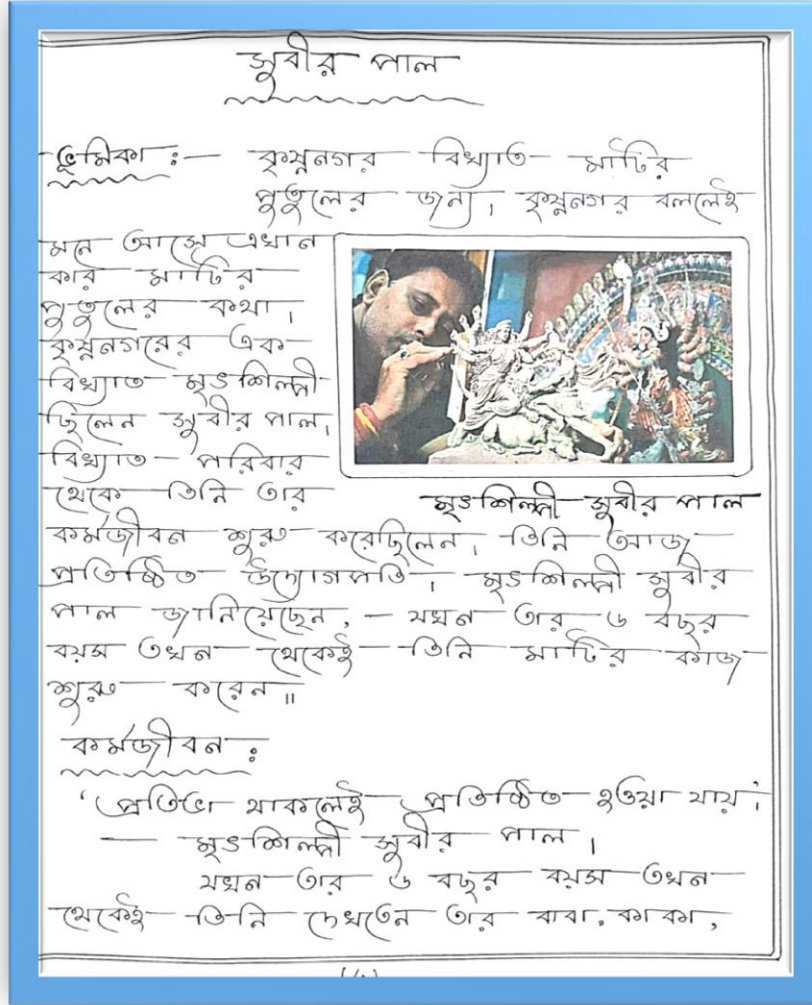 সুবীর পাল
ভূমিকা :— কৃষ্ণনগর বিখ্যাত মাটির
পুতুলের জন্য। কৃষ্ণনগর বললেই
মনে আসে এখান
কার মাটির
পুতুলের কথা।
কৃষ্ণনগরের এক
বিখ্যাত মৃৎশিল্পী
ছিলেন সুবীর পাল,
বিখ্যাত পরিবার
থেকে তিনি তার
মৃৎশিল্পী সুবীর পাল
কর্মজীবন শুরু করেছিলেন। তিনি আজ
প্রতিষ্ঠিত উদ্যোগপতি। মৃৎশিল্পী সুবীর
পাল জানিয়েছেন, — যখন তার ৬ বছর
বয়স তখন থেকেই তিনি মাটির কাজ
শুরু করেন॥
কর্মজীবন :
'প্রতিভা থাকলেই প্রতিষ্ঠিত হওয়া যায়'।
— মৃৎশিল্পী সুবীর পাল।
যখন তার ৬ বছর বয়স তখন
থেকেই তিনি দেখতেন তার বাবা, কাকা,